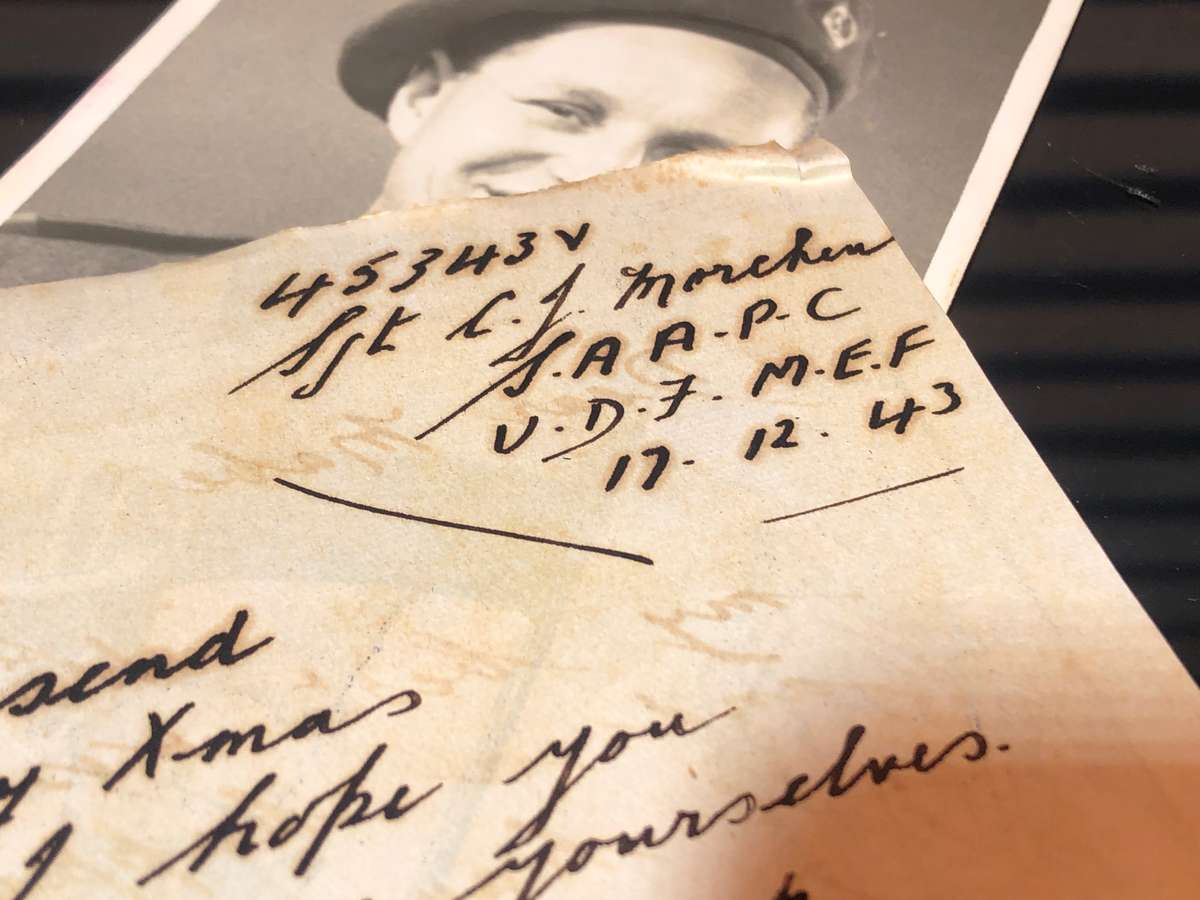 45343V
Sgt C.J. Morchen
S.A A.P.C
U.D.F. M.E.F
17. 12. 43
send
Xmas
I hope you
yourselves.